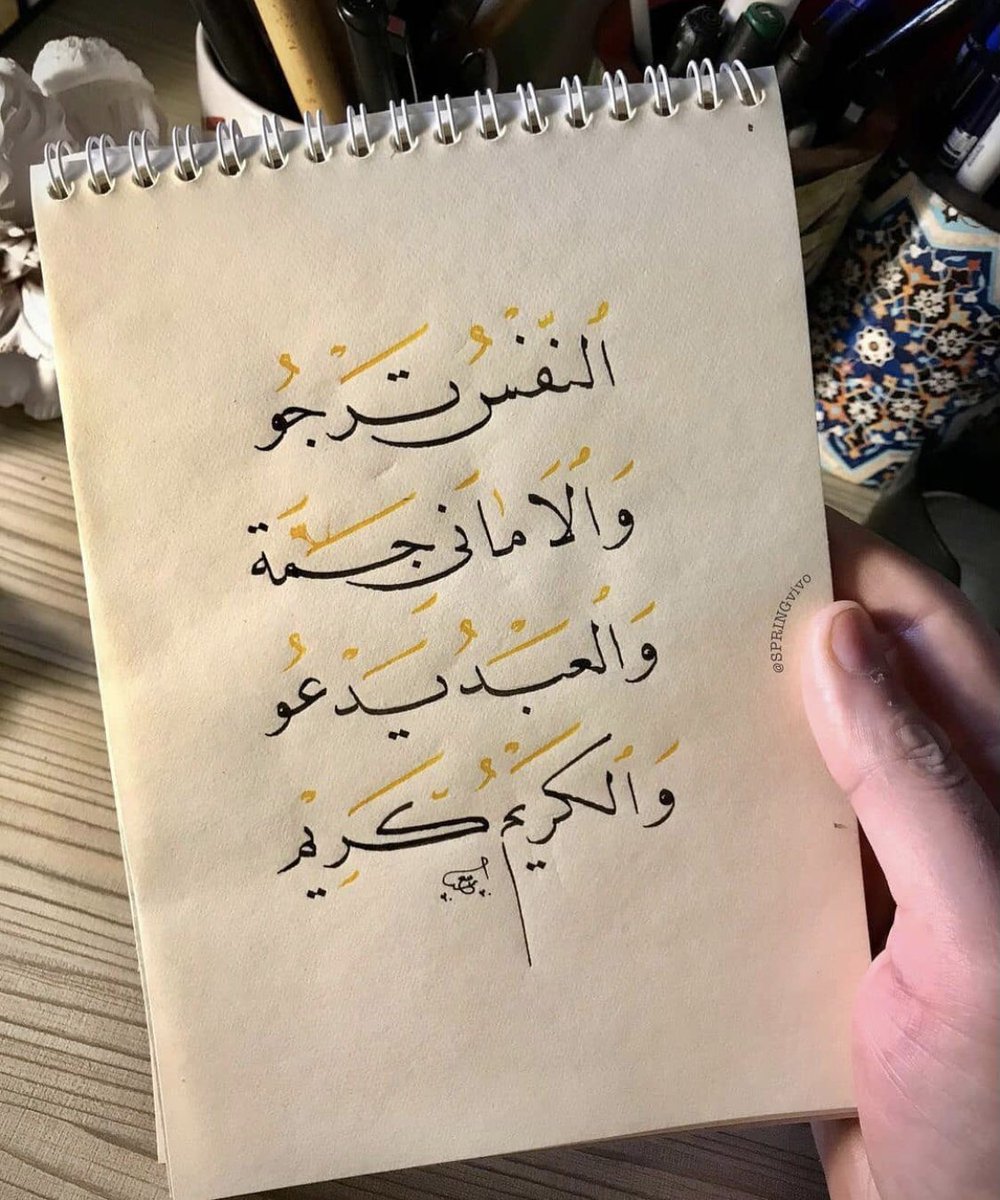 النَّفْسُ تَرْجُو
وَالْأَمَانِي جَمَّةٌ
وَالْعَبْدُ يَدْعُو
وَالْكَرِيمُ كَرِيمْ
@SPRINGvivo